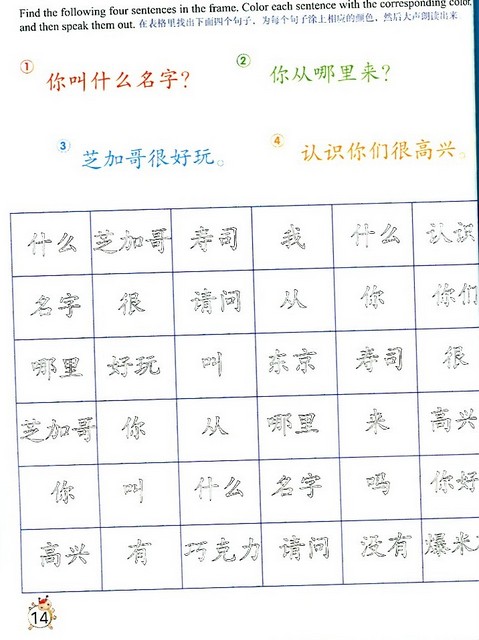 Find the following four sentences in the frame. Color each sentence with the corresponding color,
and then speak them out. 在表格里找出下面四个句子，为每个句子涂上相应的颜色，然后大声朗读出来
1 你叫什么名字？
2 你从哪里来？
3 芝加哥很好玩。
4 认识你们很高兴。
什么 芝加哥 寿司 我 什么 认识
名字 很 请问 从 你 你们
哪里 好玩 叫 东京 寿司 很
芝加哥 你 从 哪里 来 高兴
你 叫 什么 名字 吗 你好
高兴 有 巧克力 请问 没有 爆米
14